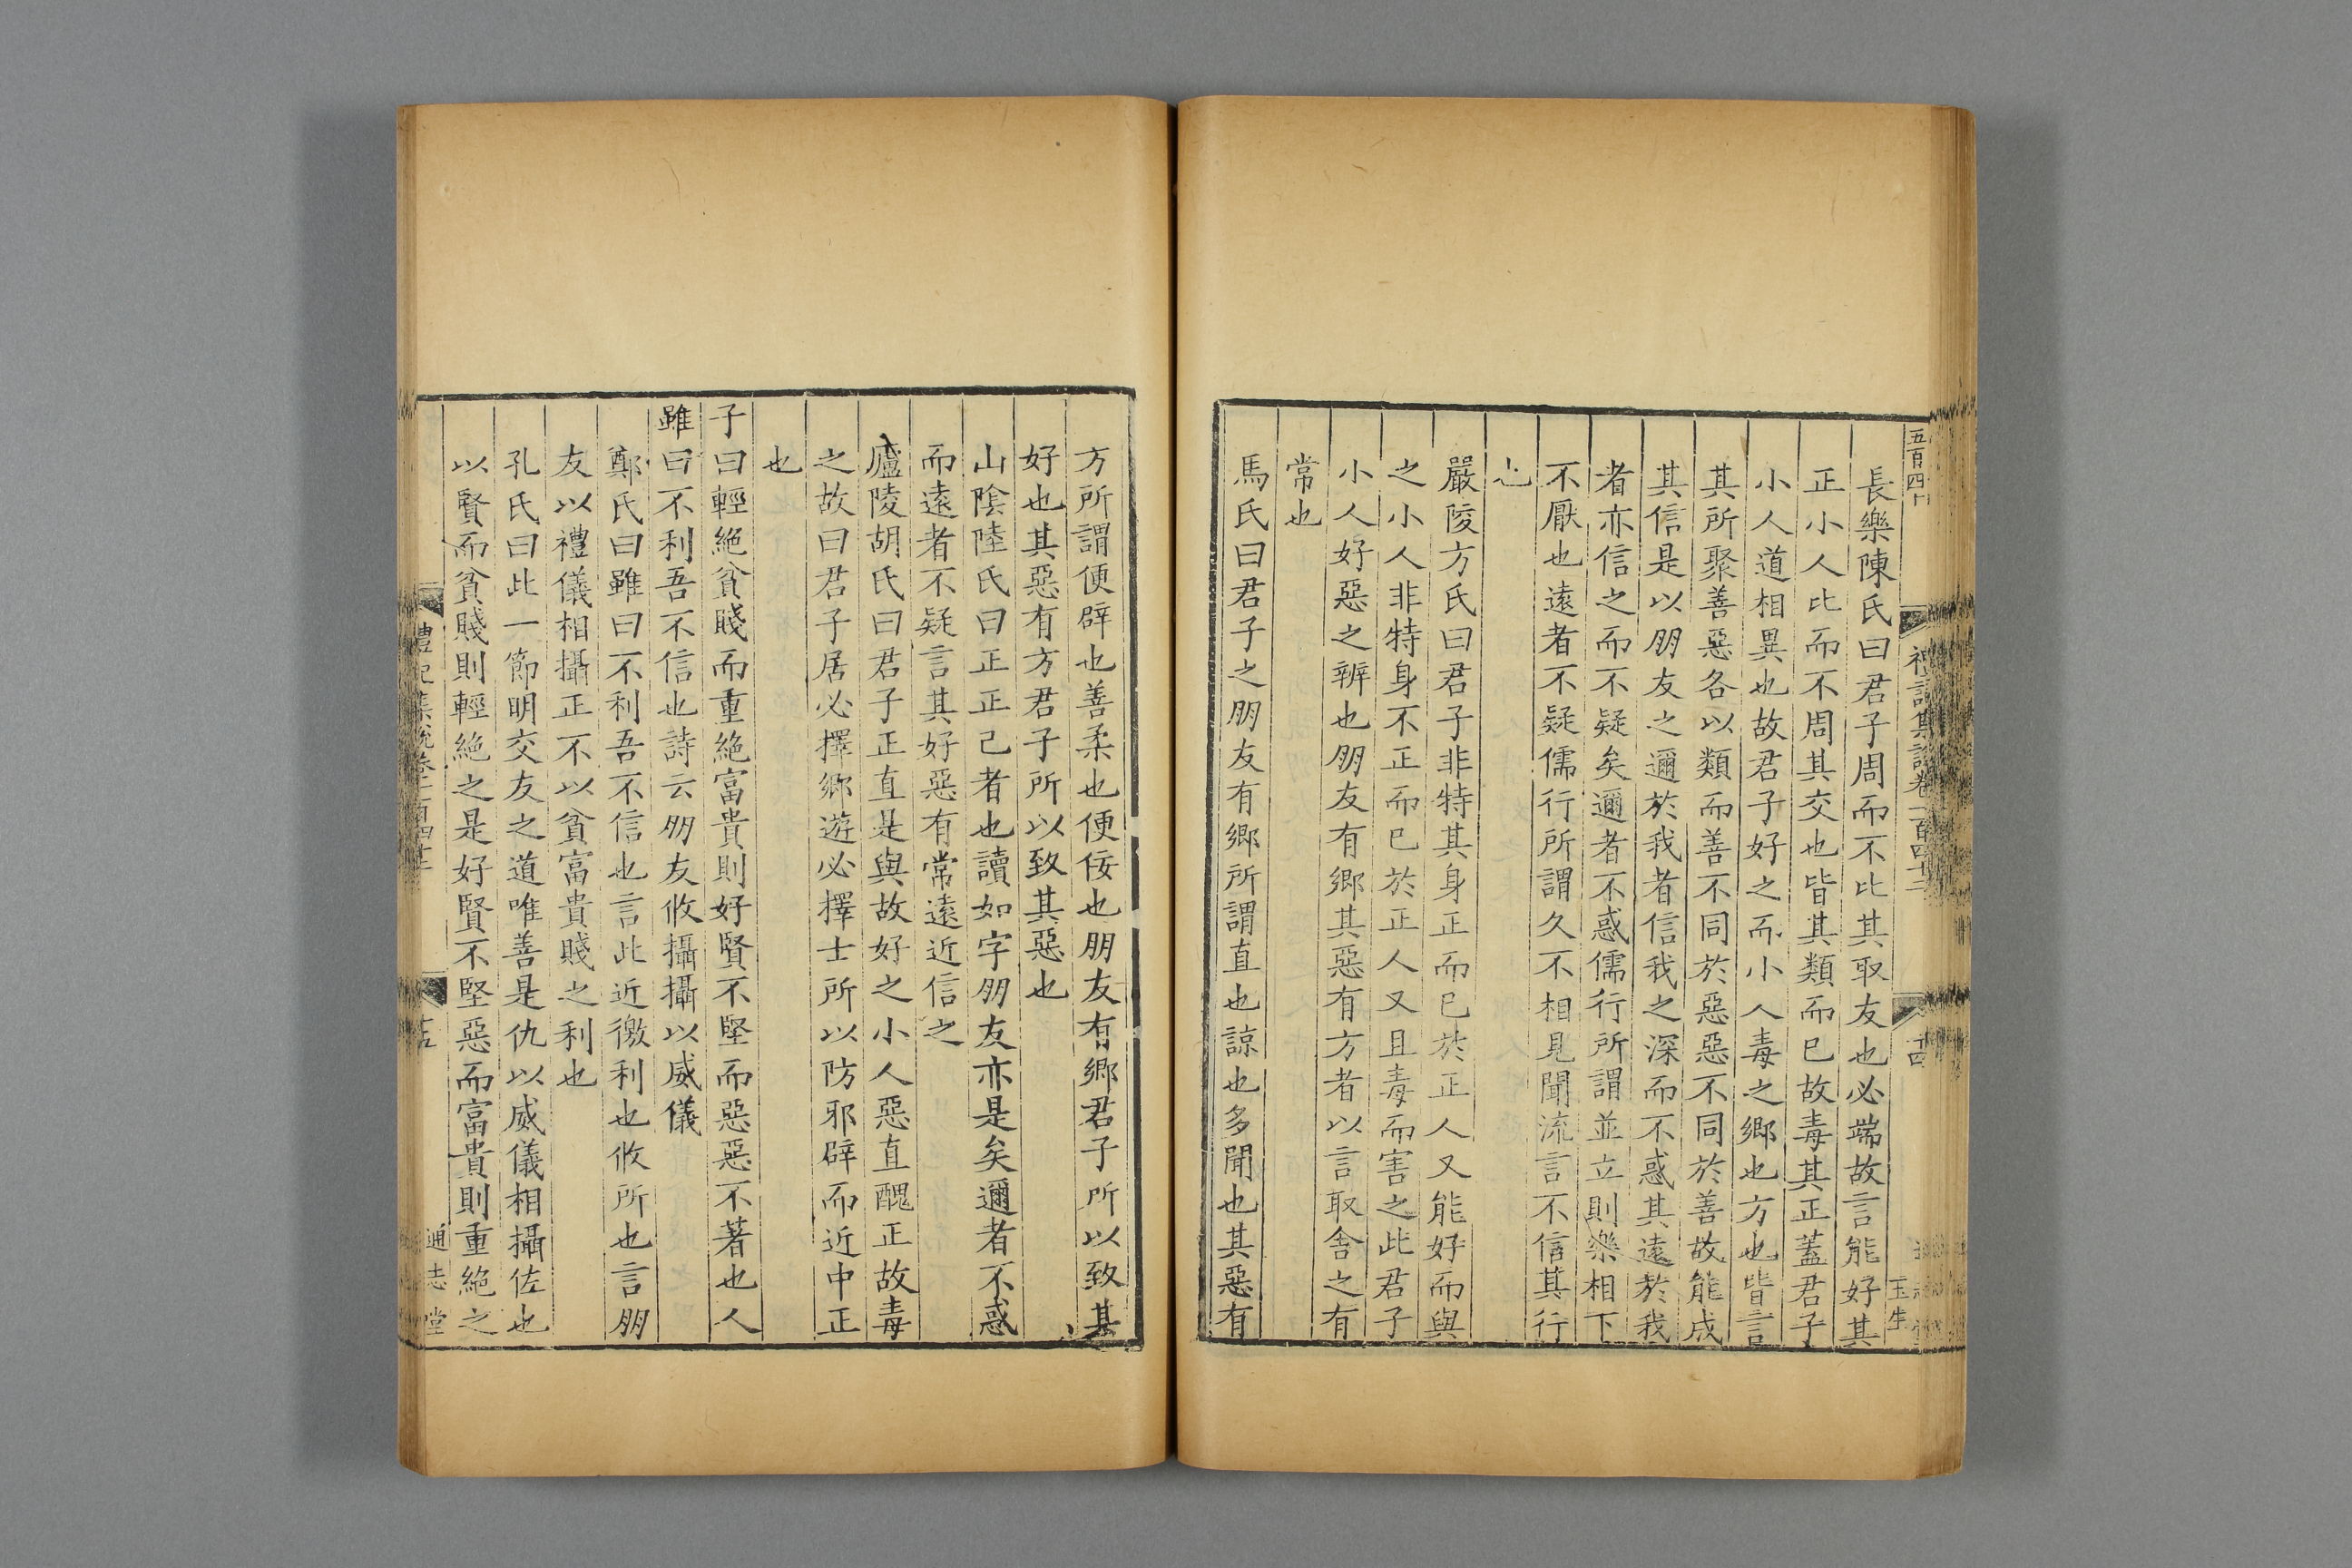 五百四十
禮記集說卷一百四十二
十四
玉生
長樂陳氏曰君子周而不比其取友也必端故言能好其
正小人比而不周其交也皆其類而已故毒其正蓋君子
小人道相異也故君子好之而小人毒之鄉也方也皆言
其所聚善惡各以類而善不同於惡惡不同於善故能成
其信是以朋友之邇於我者信我之深而不惑其遠於我
者亦信之而不疑矣邇者不惑儒行所謂並立則樂相下
不厭也遠者不疑儒行所謂久不相見聞流言不信其行
也
嚴陵方氏曰君子非特其身正而已於正人又能好而與
之小人非特身不正而已於正人又且毒而害之此君子
小人好惡之辨也朋友有鄉其惡有方者以言取舍之有
常也
馬氏曰君子之朋友有鄉所謂直也諒也多聞也其惡有
方所謂便辟也善柔也便佞也朋友有鄉君子所以致其
好也其惡有方君子所以致其惡也
山陰陸氏曰正正己者也讀如字朋友亦是矣邇者不惑
而遠者不疑言其好惡有常遠近信之
廬陵胡氏曰君子正直是與故好之小人惡直醜正故毒
之故曰君子居必擇鄉遊必擇士所以防邪辟而近中正
也
子曰輕絕貧賤而重絕富貴則好賢不堅而惡惡不著也人
雖曰不利吾不信也詩云朋友攸攝攝以威儀
鄭氏曰雖曰不利吾不信也言此近徼利也攸所也言朋
友以禮儀相攝正不以貧富貴賤之利也
孔氏曰此一節明交友之道唯善是仇以威儀相攝佐也
以賢而貧賤則輕絕之是好賢不堅惡而富貴則重絕之
禮記集說卷一百四十二
十五
通志堂